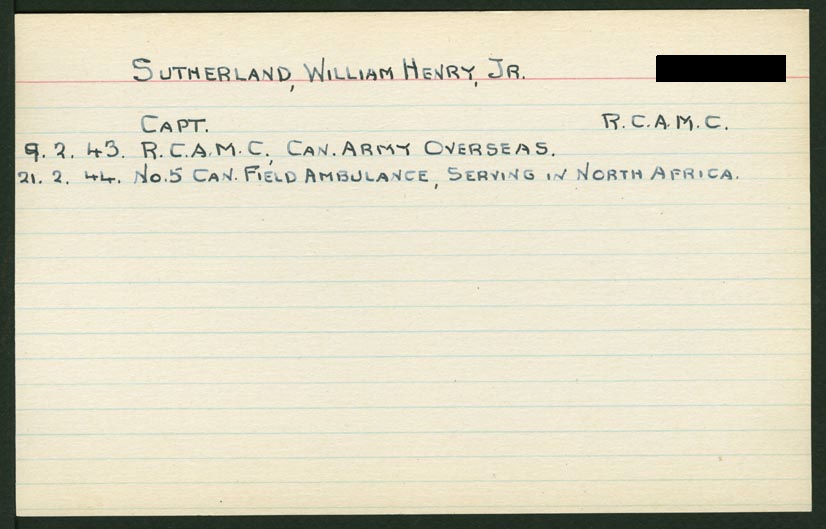 SUTHERLAND, WILLIAM HENRY, JR.
CAPT. R.C.A.M.C.
9. 2. 43. R.C.A.M.C., CAN. ARMY OVERSEAS.
21. 2. 44. No.5 CAN. FIELD AMBULANCE, SERVING IN NORTH AFRICA.